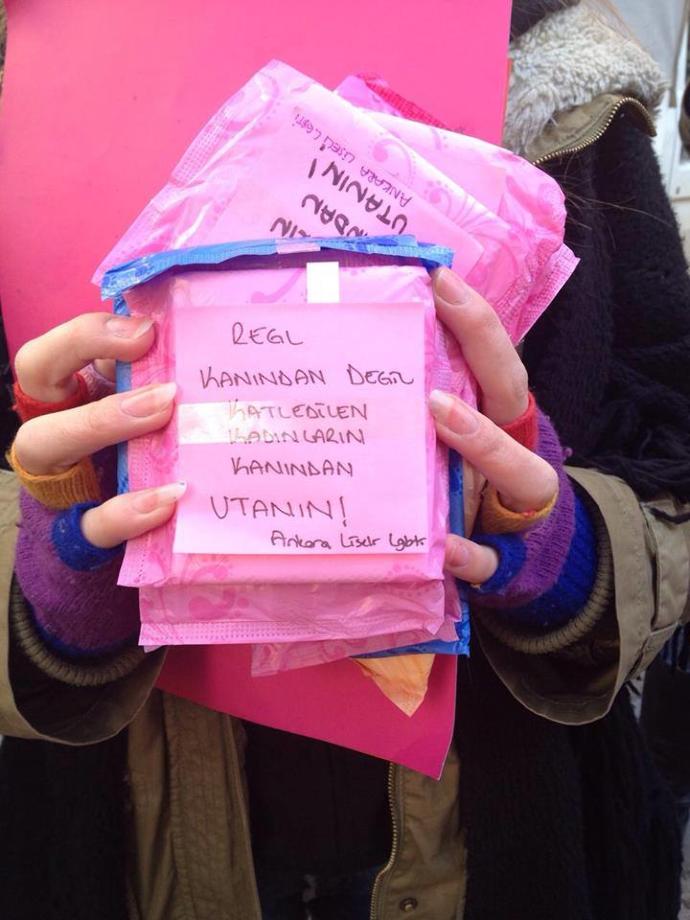 REGL
KANINDAN DEĞİL
KATLEDİLEN
KADINLARIN
KANINDAN
UTANIN!
Ankara Liseli Lgbti
UTANIN!
ANKARA LİSELİ LGBTİ